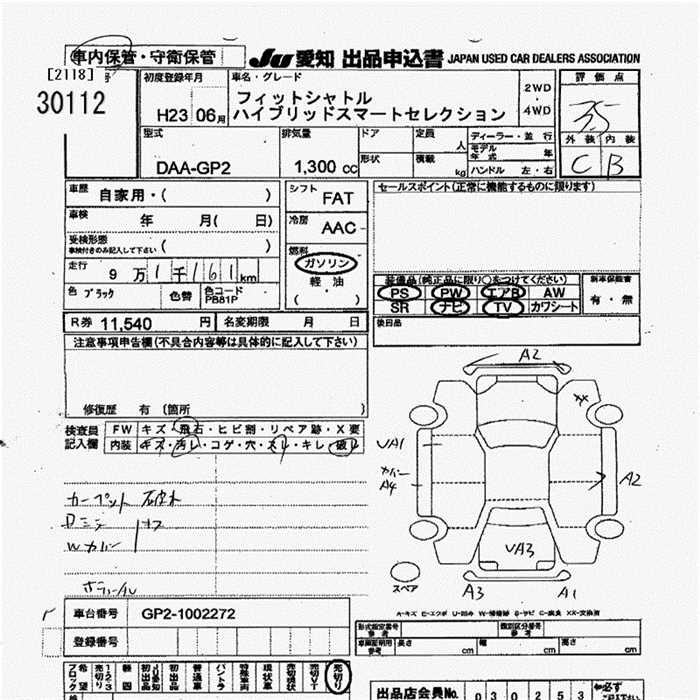 車内保管・守衛保管
JU 愛知 出品申込書 JAPAN USED CAR DEALERS ASSOCIATION
[2118] 号
30112
初度登録年月 車名・グレード
H23 06月
フィットシャトル
ハイブリッドスマートセレクション
2WD
・
4WD
評価点
3.5
外装 内装
C B
型式 排気量 ドア 定員 人 ディーラー・並行
DAA-GP2 1,300 cc
形状 積載 kg
モデル年式 年
ハンドル 左・右
車歴 自家用・( )
車検 年 月( 日)
受検形態
車検付きのみ記入して下さい ( )
走行 9万1千161km
色 ブラック 色替 色コード PB81P
シフト FAT
冷房 AAC
燃料
ガソリン
軽油
( )
セールスポイント(正常に機能するものに限ります)
装備品(純正品に限り○をつけてください) 新車保証書
PS PW エアB AW 有・無
SR ナビ TV カワシート
後日品
R券 11,540 円 名変期限 月 日
注意事項申告欄(不具合内容等は具体的に記入して下さい)
修復歴 有 (箇所 )
検査員記入欄
FW キズ・飛石・ヒビ割・リペア跡・X要
内装 キズ・汚レ・コゲ・穴・スレ・キレ・破レ
カーペット 破れ
Wカバー
A2
XX
UA1
カバー
A4
A2
UA3
スペア
A3 A1
A-キズ E-エクボ U-凹み W-補修跡 S-サビ C-腐食 XX-交換済
車台番号 GP2-1002272
登録番号
形式指定番号 参考 類別区分番号 参考
車両証明用 参考 長さ cm 幅 cm 高さ cm
希望ブロック
売切り 1・2・3
JU愛知初出品
初出品
普通車
バントラ
特殊車両
現状車
売切現状
売切VT
売切り
出品店会員No. 030253 必ず